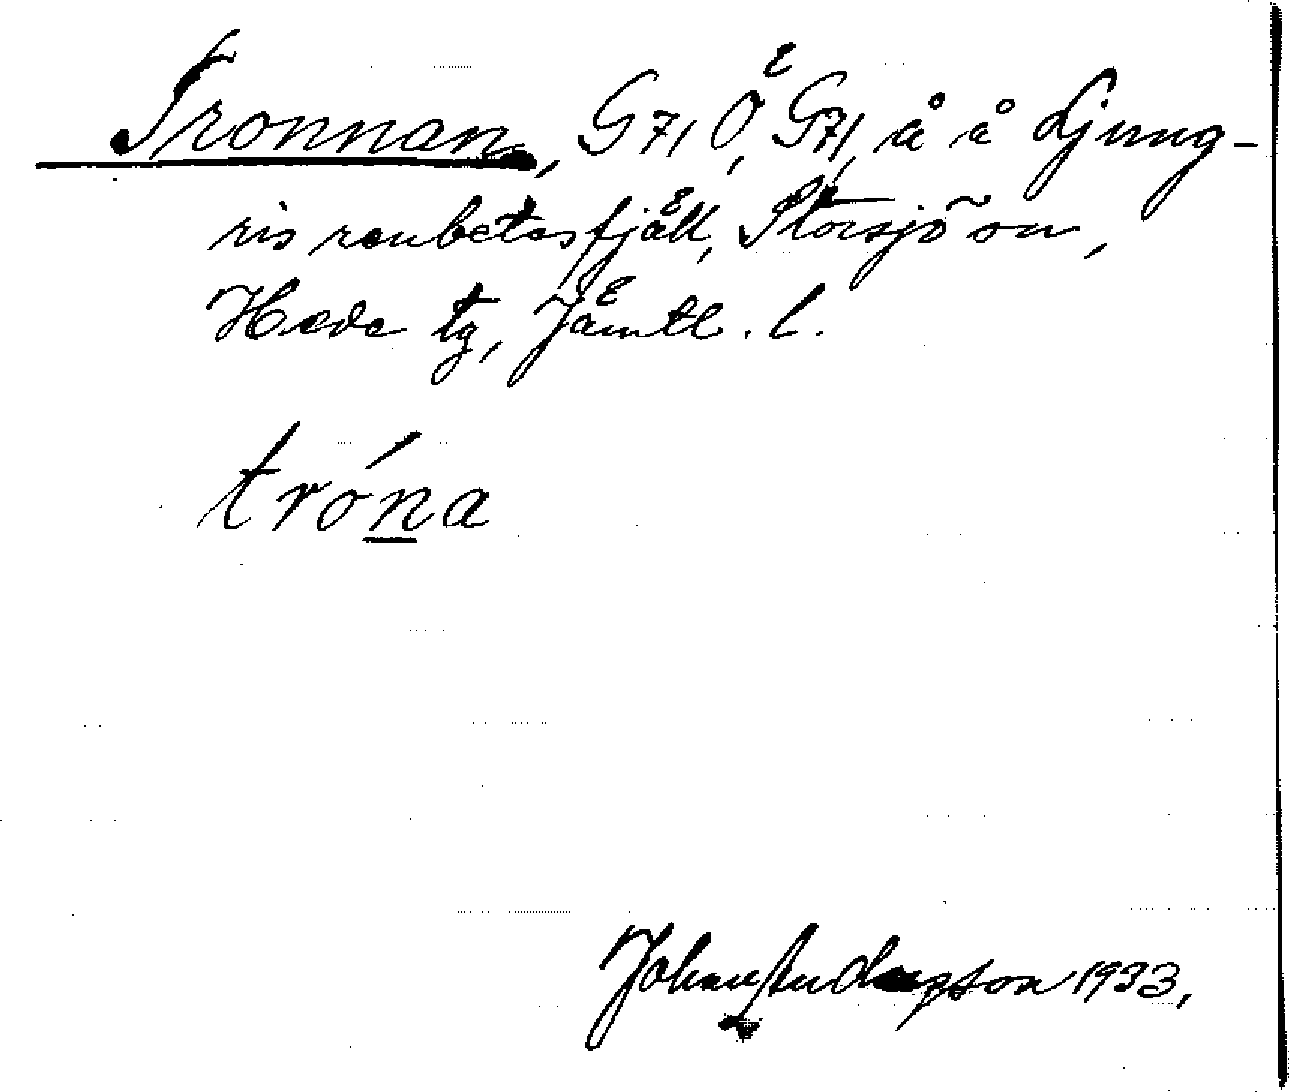 Tronnan, G71, Ö, G71, å å Ljung-
ris renbetesfjäll, Storsjö sn,
Hede tg, Jämtl. l.
tróna
Johan Anderson 1933.